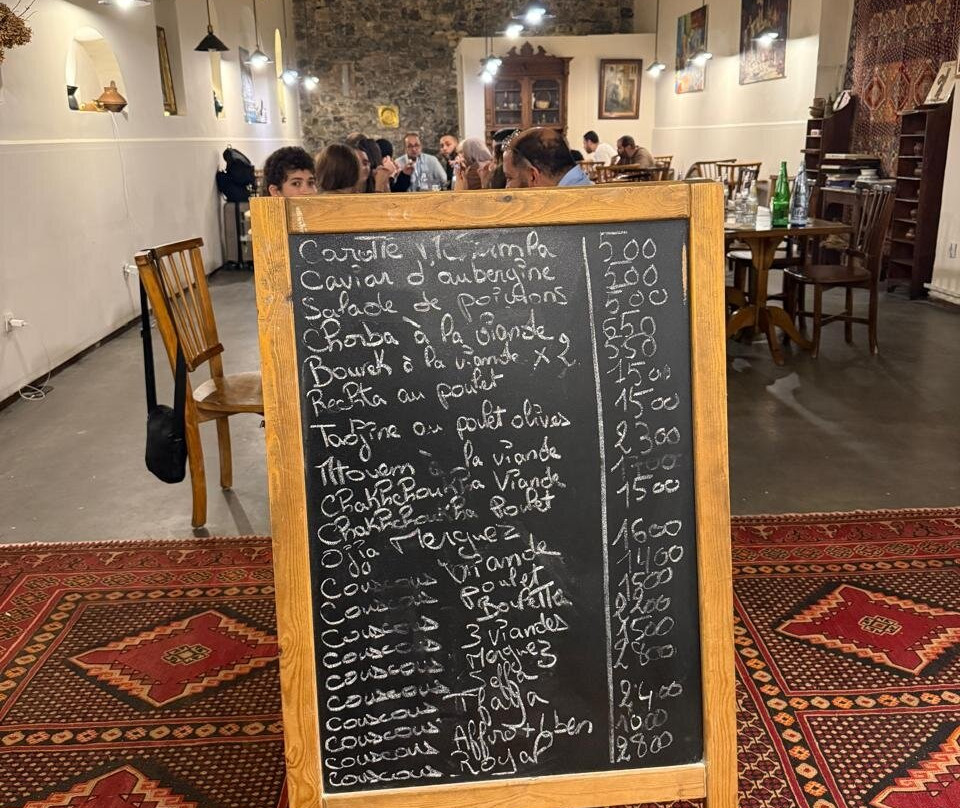 Carotte M'Cherm­la 500
Caviar d'aubergine 500
Salade de poivrons 500
Chorba à la viande 650
Bourek à la viande x2 550
Rechta au poulet 1500
Tadjine au poulet olives 1500
Mtowem à la viande 2300
Chakhchoukha Viande 1700
Chakhchoukha Poulet 1500
Ojja Merguez
Couscous Viande 1600
Couscous Poulet 1400
Couscous 1500
Couscous 3 viandes 2200
Couscous Merguez 1500
Couscous 2800
Couscous Tfaya 2400
Couscous Affir + lben 1000
Couscous Royal 2800